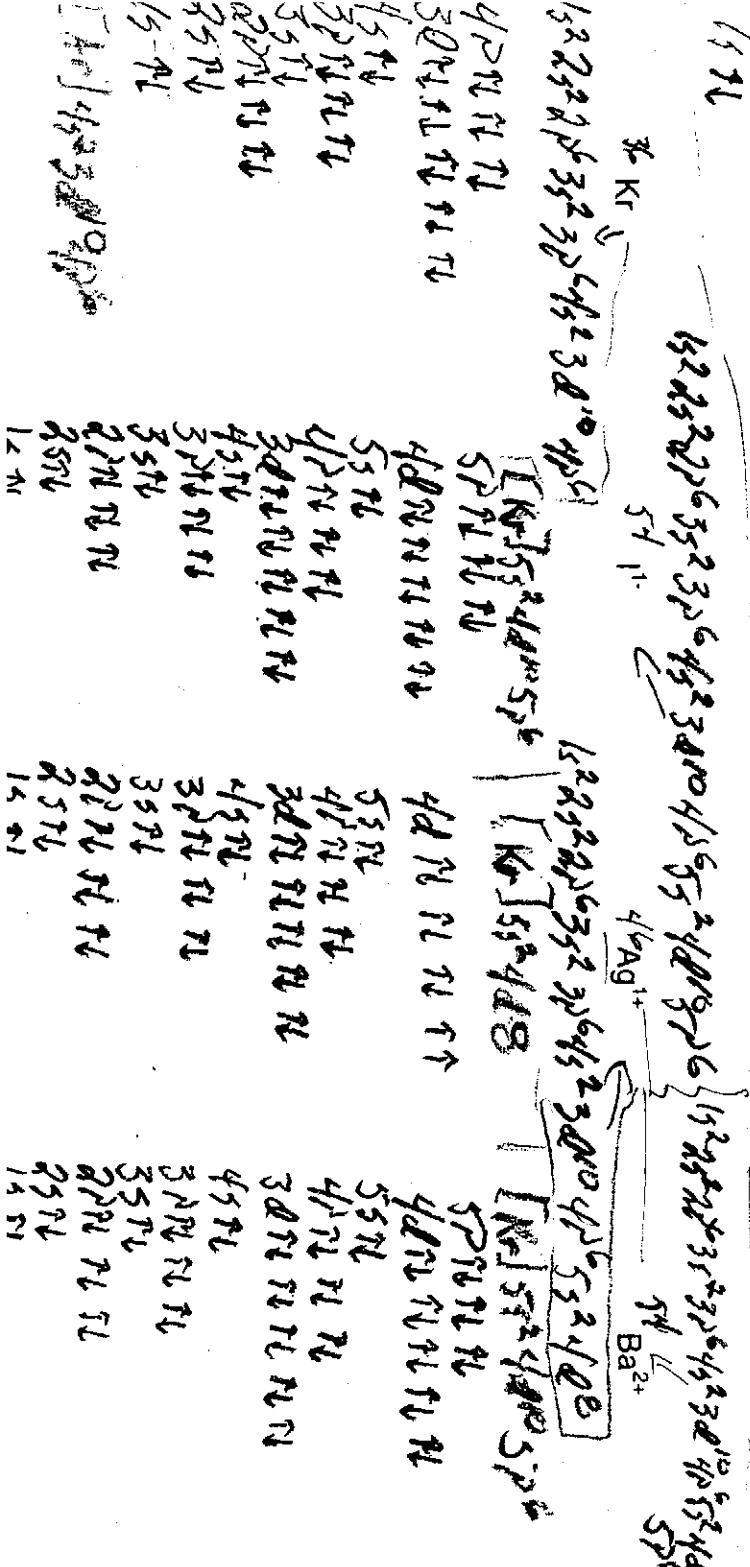 1s ↑↓
36 Kr
1s² 2s² 2p⁶ 3s² 3p⁶ 4s² 3d¹⁰ 4p⁶
4p ↑↓ ↑↓ ↑↓
3d ↑↓ ↑↓ ↑↓ ↑↓ ↑↓
4s ↑↓
3p ↑↓ ↑↓ ↑↓
3s ↑↓
2p ↑↓ ↑↓ ↑↓
2s ↑↓
1s ↑↓
[Ar] 4s² 3d¹⁰ 4p⁶
1s² 2s² 2p⁶ 3s² 3p⁶ 4s² 3d¹⁰ 4p⁶ 5s² 4d¹⁰ 5p⁶
54 I¹⁻
[Kr] 5s² 4d¹⁰ 5p⁶
5p ↑↓ ↑↓ ↑↓
4d ↑↓ ↑↓ ↑↓ ↑↓ ↑↓
5s ↑↓
4p ↑↓ ↑↓ ↑↓
3d ↑↓ ↑↓ ↑↓ ↑↓ ↑↓
4s ↑↓
3p ↑↓ ↑↓ ↑↓
3s ↑↓
2p ↑↓ ↑↓ ↑↓
2s ↑↓
1s ↑↓
46 Ag¹⁺
1s² 2s² 2p⁶ 3s² 3p⁶ 4s² 3d¹⁰ 4p⁶ 5s² 4d⁸
[Kr] 5s² 4d⁸
4d ↑↓ ↑↓ ↑↓ ↑ ↑
5s ↑↓
4p ↑↓ ↑↓ ↑↓
3d ↑↓ ↑↓ ↑↓ ↑↓ ↑↓
4s ↑↓
3p ↑↓ ↑↓ ↑↓
3s ↑↓
2p ↑↓ ↑↓ ↑↓
2s ↑↓
1s ↑↓
1s² 2s² 2p⁶ 3s² 3p⁶ 4s² 3d¹⁰ 4p⁶ 5s² 4d
5p⁶
54 Ba²⁺
[Kr] 5s² 4d¹⁰ 5p⁶
5p ↑↓ ↑↓ ↑↓
4d ↑↓ ↑↓ ↑↓ ↑↓ ↑↓
5s ↑↓
4p ↑↓ ↑↓ ↑↓
3d ↑↓ ↑↓ ↑↓ ↑↓ ↑↓
4s ↑↓
3p ↑↓ ↑↓ ↑↓
3s ↑↓
2p ↑↓ ↑↓ ↑↓
2s ↑↓
1s ↑↓